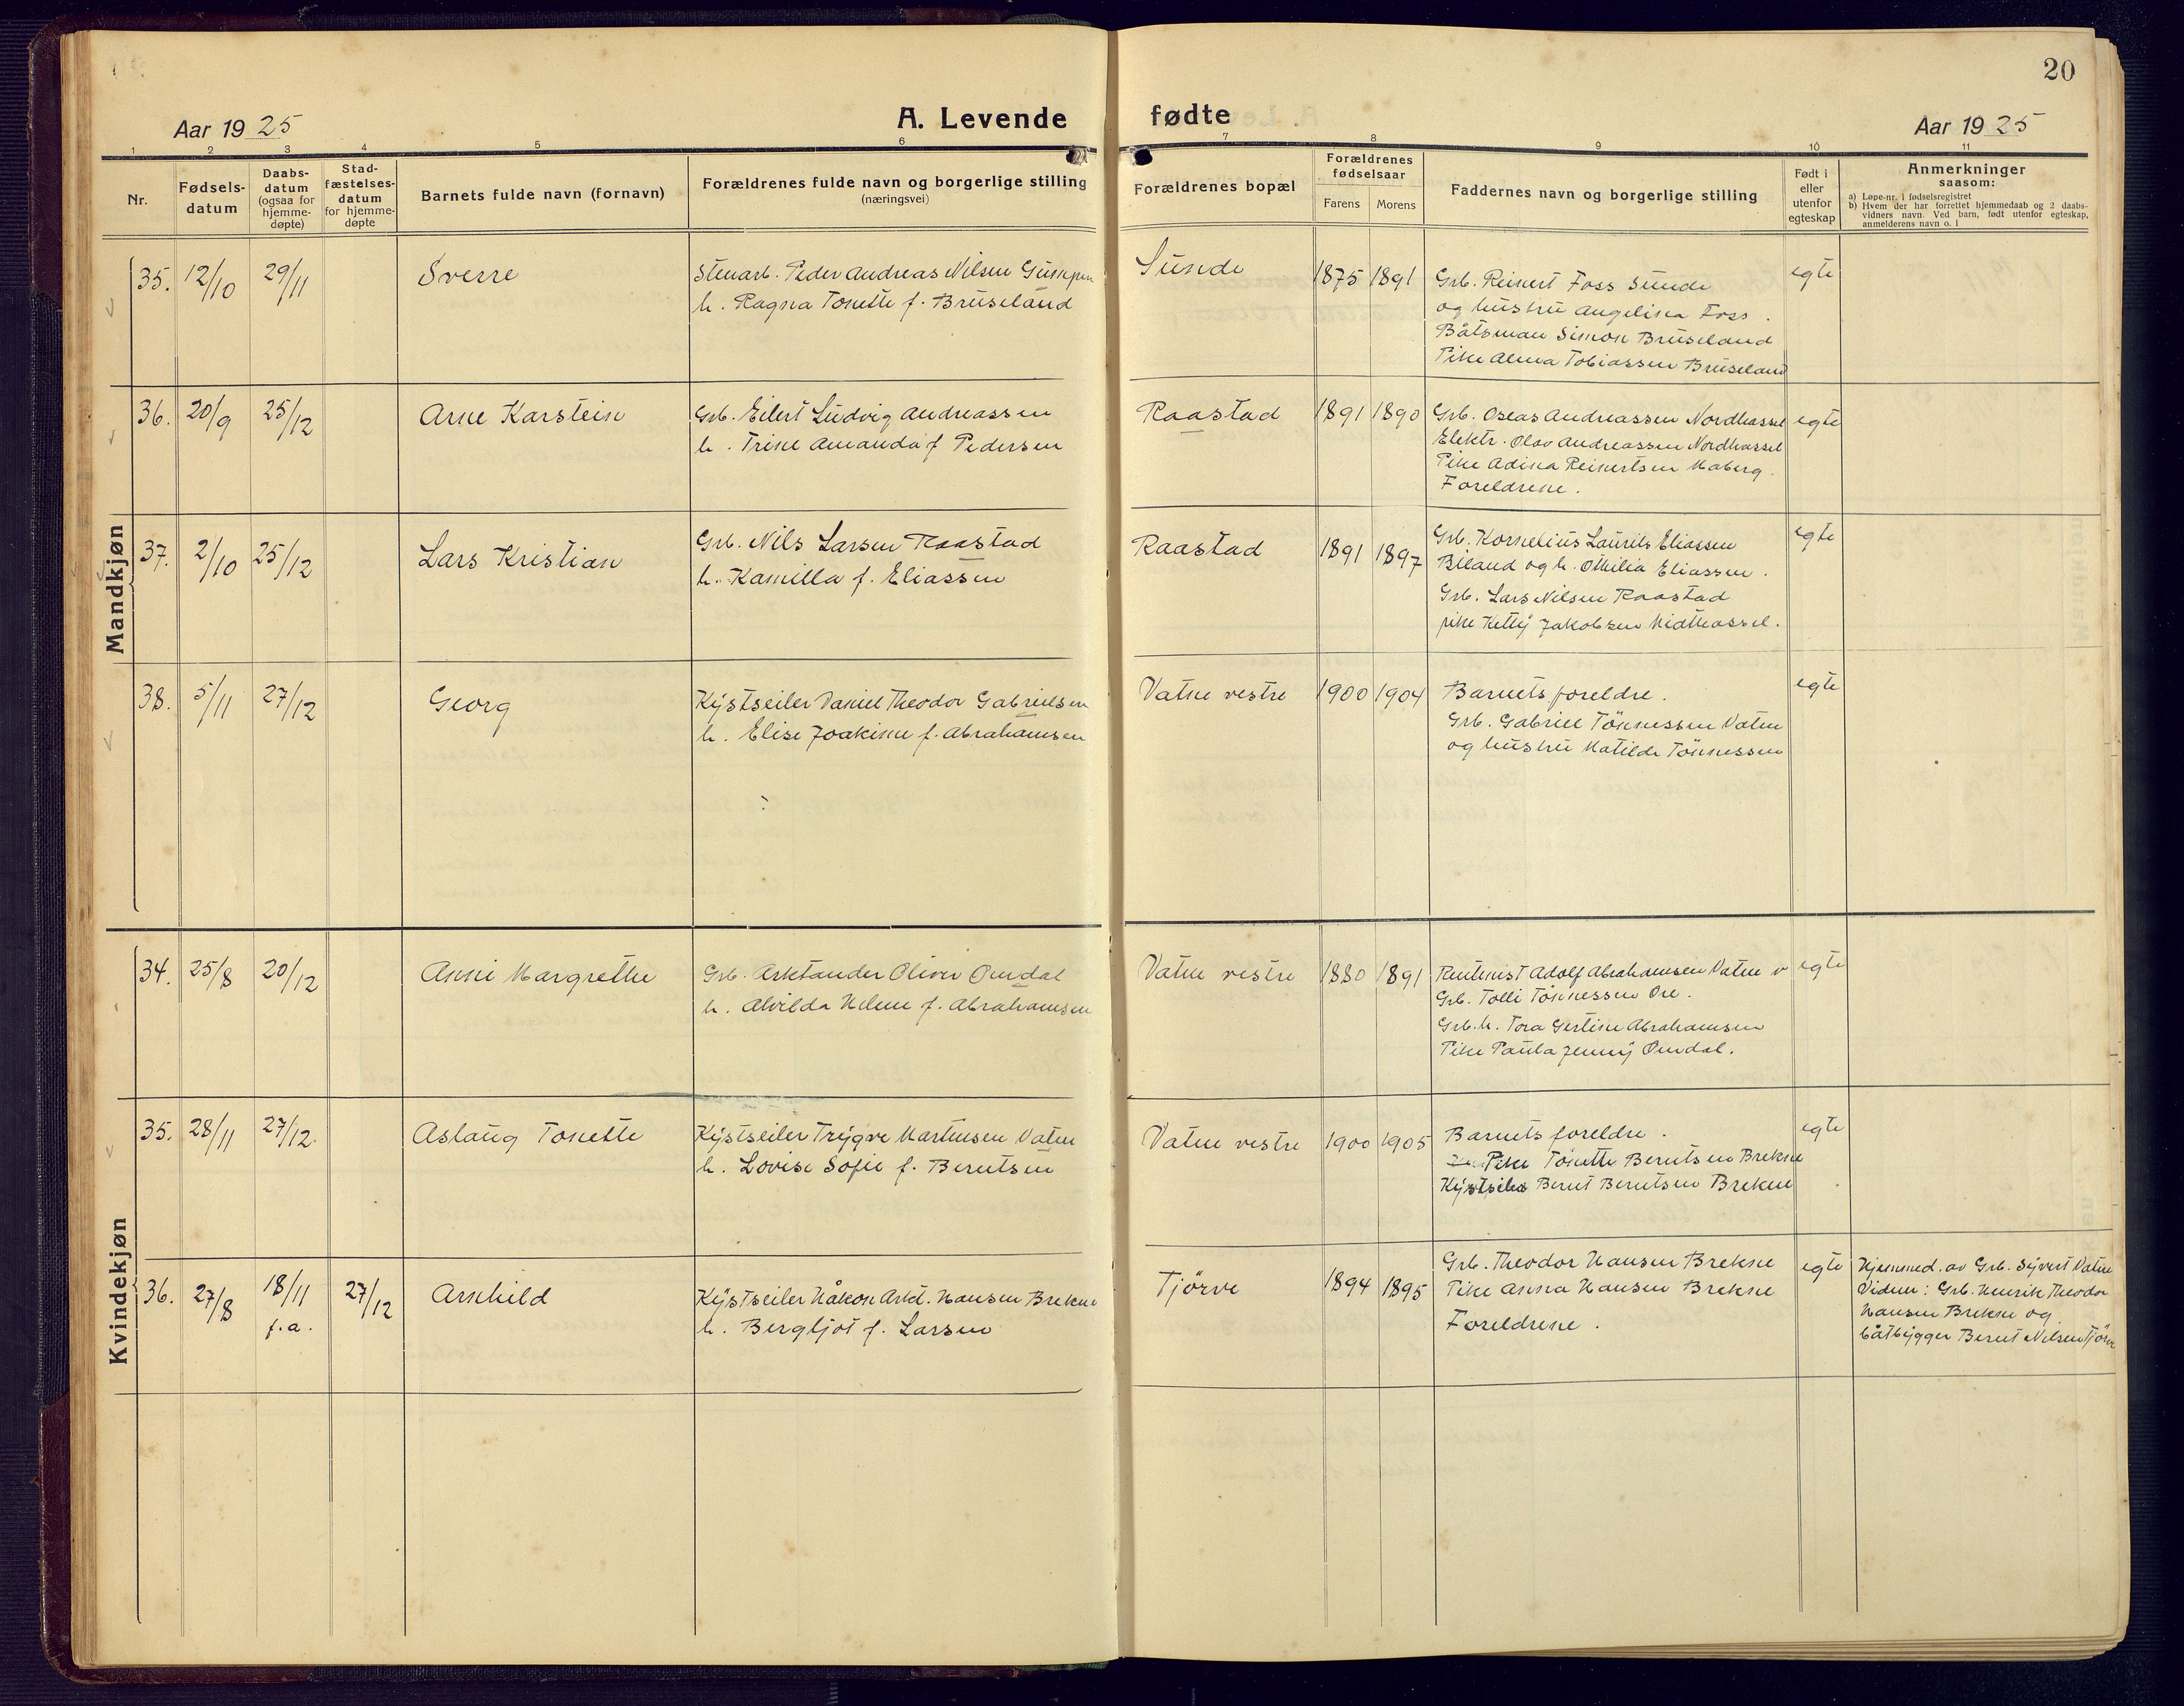 20
Aar 1925
A. Levende fødte
Aar 1925
1 2 3 4 5 6 7 8 9 10 11
Nr.
Fødsels-
datum
Daabs-
datum
(ogsaa for
hjemme-
døpte)
Stad-
fæstelses-
datum
for hjemme-
døpte
Barnets fulde navn (fornavn)
Forældrenes fulde navn og borgerlige stilling
(næringsvei)
Forældrenes bopæl
Forældrenes
fødselsaar
Farens Morens
Faddernes navn og borgerlige stilling
Født i
eller
utenfor
egteskap
Anmerkninger
saasom:
a) Løpe-nr. i fødselsregistret
b) Hvem der har forrettet hjemmedaab og 2 daabs-
vidners navn. Ved barn, født utenfor egteskap,
anmelderens navn o. l
Mandkjøn
35. 12/10 29/11 Sverre
Stenarb. Peder Andreas Nilsen Gumpen
h. Ragna Tonette f. Bruseland
Sunde 1875 1891
Grb. Reinert Foss Sunde
og hustru Angelina Foss.
Båtsman Simon Bruseland
Pike Alma Tobiassen Bruseland
egte
36. 20/9 25/12 Arne Karstein
Grb. Eilert Ludvig Andreassen
h. Trine Amanda f Pedersen
Raastad 1891 1890
Grb. Oseas Andreassen Nordhassel
Elektr. Olav Andreassen Nordhassel
Pike Adina Reinertsen Maberg.
Foreldrene.
egte
37. 2/10 25/12 Lars Kristian
Grb. Nils Larsen Raastad
h. Kamilla f. Eliassen
Raastad 1891 1897
Grb. Kornelius Laurits Eliassen
Biland og h. Othilia Eliassen.
Grb. Lars Nilsen Raastad
pike Ketty Jakobsen Midthassel.
egte
38. 5/11 27/12 Georg
Kystseiler Daniel Theodor Gabrielsen
h. Elise Joakime f. Abrahamsen
Vatne vestre 1900 1904
Barnets foreldre.
Grb. Gabriel Tönnessen Vatne
og hustru Matilde Tönnessen
egte
Kvindekjøn
34. 25/8 20/12 Anni Margrethe
Grb. Arktander Oliver Omdal
h. Alvilda Helene f. Abrahamsen
Vatne vestre 1880 1891
Rentenist Adolf Abrahamsen Vatne v
Grb. Tolli Tönnessen Ore.
Grb.h. Tora Gertine Abrahamsen
Pike Paula Jenny Omdal.
egte
35. 28/11 27/12. Aslaug Tonette
Kystseiler Trygve Martensen Vatne
h. Lovise Sofie f. Berntsen
Vatne vestre 1900 1905
Barnets foreldre.
Pike Tonette Berntsen Brekne
Kystseiler Bernt Berntsen Brekne
egte
36. 27/8 18/11 f.a. 27/12 Arnhild
Kystseiler Håkon Arnt. Hansen Brekne
h. Bergljot f. Larsen
Tjörve 1894 1895
Grb. Theodor Hansen Brekne
Pike Anna Hansen Brekne
Foreldrene.
egte
Hjemmed. av Grb. Syvert Vatne
Vidner: Grb. Henrik Theodor
Hansen Brekne og
båtbygger Bernt Nilsen Tjörve